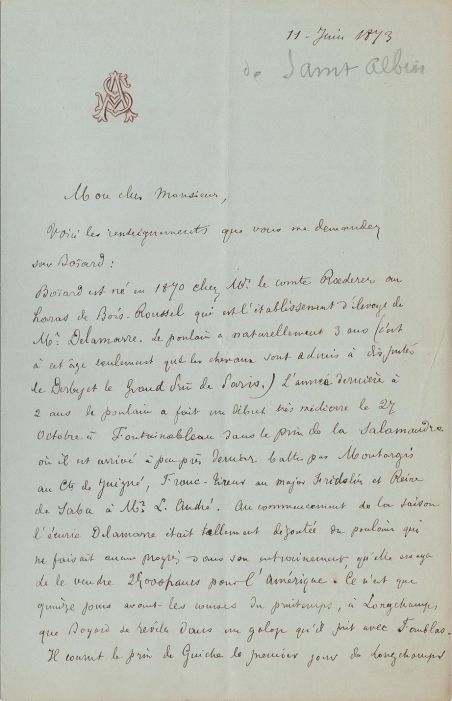 11 - Juin 1873
de Saint Albin
SA
Mon cher Monsieur,
Voici les renseignements que vous me demandez
sur Boïard :
Boïard est né en 1870 chez Mr. le comte Rœderer au
haras de Bois-Roussel qui est l'établissement d'élevage de
Mr. Delamarre. Le poulain a naturellement 3 ans (c'est
à cet âge seulement que les chevaux sont admis à disputer
le Derby et le Grand Prix de Paris.) L'année dernière à
2 ans le poulain a fait un début très médiocre le 27
Octobre à Fontainebleau dans le prix de la Salamandre
où il est arrivé à peu près dernier battu par Montargis
au Cte de Juigné, Franc-Tireur au major Fridolin et Reine
de Saba à Mr. L. André. Au commencement de la saison
l'écurie Delamarre était tellement dégoutée du poulain qui
ne faisait aucun progrès dans son entrainement, qu'elle essaya
de le vendre 25000 francs pour l'Amérique. Ce n'est que
quinze jours avant les courses du printemps, à Longchamps
que Boyard se révéla dans un galop qu'il fit avec Faublas.
Il courut le prix de Guiche le premier jour de Longchamps